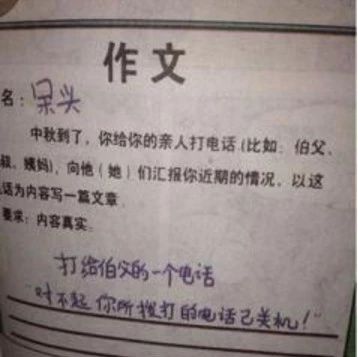 作文
名：呆头
中秋到了，你给你的亲人打电话(比如：伯父、
叔、姨妈)，向他（她）们汇报你近期的情况。以这
话为内容写一篇文章
要求：内容真实
打给伯父的一个电话
“对不起 你所拨打的电话已关机！”